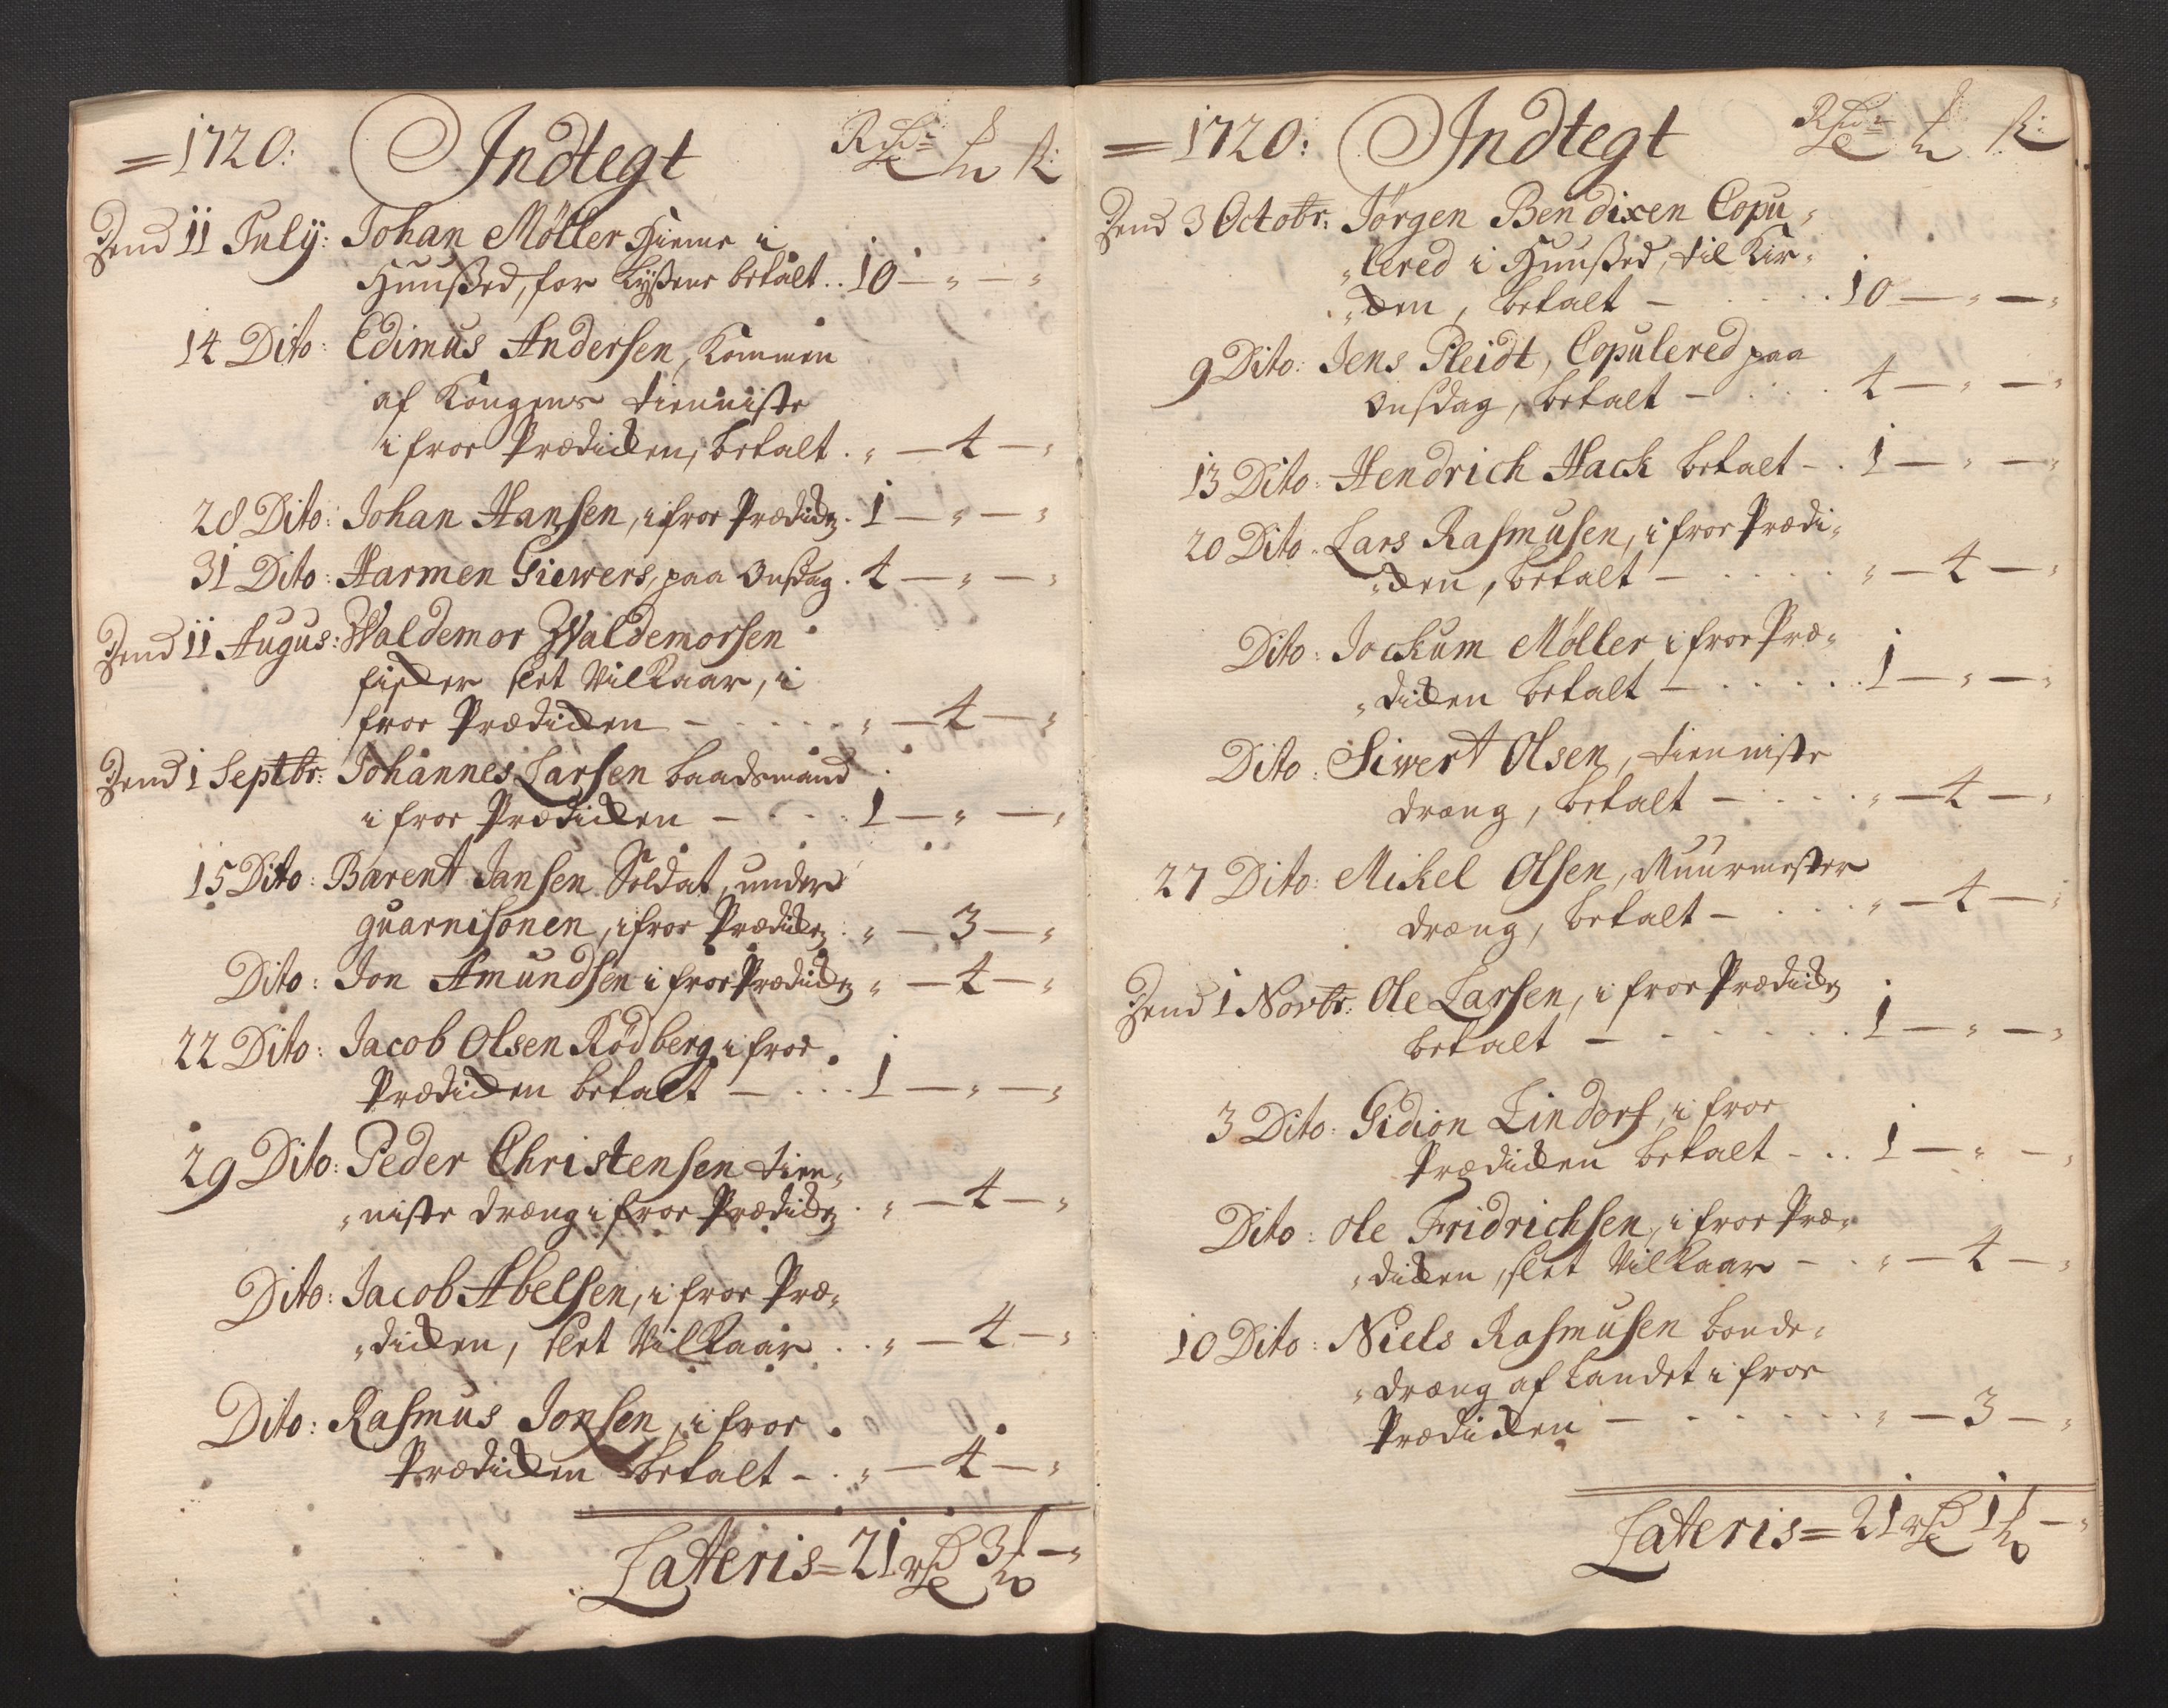 =1720: Indtegt Rixdr: mk ß:
Dend 11 July: Johan Möller Hieme i
Huußed, for Lyßene betalt .. 10 — " — "
14 Dito: Edimus Andersen, Kommen
af Kongens tienniste
i froe Prædicken, betalt . " — 4 — "
28 Dito: Johan Hansen, i froe Prædicken . 1 — " — "
31 Dito: Harmen Giewers, paa Onsdag . 4 — " — "
Dend 11 Augus: Waldemor Waldemorsen
fisker slet Vilkaar, i
froe Prædicken — . . . . " — 4 — "
Dend 1 Septbr: Johannes Larsen baadsmand
i froe Prædicken — . . . 1 — " — "
15 Dito: Barent Jansen Soldat, under
guarnisonen, i froe Prædicken . " — 3 — "
Dito: Jon Amundsen i froe Prædicken " — 4 — "
22 Dito: Jacob Olsen Rödberg i froe
Prædicken betalt — . . . 1 — " — "
29 Dito: Peder Christensen tien-
"niste dræng i froe Prædicken . " — 4 — "
Dito: Jacob Abelsen, i froe Præ-
"dicken, slet Vilkaar . . " — 4 — "
Dito: Rasmus Jonsen, i froe
Prædicken betalt - . " — 4 — "
Lateris = 21 rdr 3 mk — "
=1720: Indtegt Rixdr: mk ß:
Dend 3 Octobr: Jörgen Bendixen Copu-
"lered i Huußed, til Kir-
"cken, betalt — . . . . . 10 — " — "
9 Dito: Jens Pleidt, Copulered paa
Onsdag, betalt — . . . 4 — " — "
13 Dito: Hendrich Hack betalt - . 1 — " — "
20 Dito: Lars Rasmusen, i froe Prædi-
"cken, betalt — . . . . . " — 4 — "
Dito: Jockum Möller i froe Præ-
"dicken betalt — . . . . . 1 — " — "
Dito: Siwert Olsen, tienniste
dræng, betalt — . . . . " — 4 — "
27 Dito: Mikel Olsen, Muurmester
dræng, betalt — . . . . " — 4 — "
Dend 1 Novbr: Ole Larsen, i froe Prædicken
betalt — . . . . . . . 1 — " — "
3 Dito: Gidion Lindorf, i froe
Prædicken betalt - . . 1 — " — "
Dito: Ole Fridrichsen, i froe Præ-
"dicken, slet Vilkaar — . " — 4 — "
10 Dito: Niels Rasmusen bonde-
"dræng af Landet i froe
Prædicken — . . . . . . " — 3 — "
Lateris = 21 rdr 1 mk — "